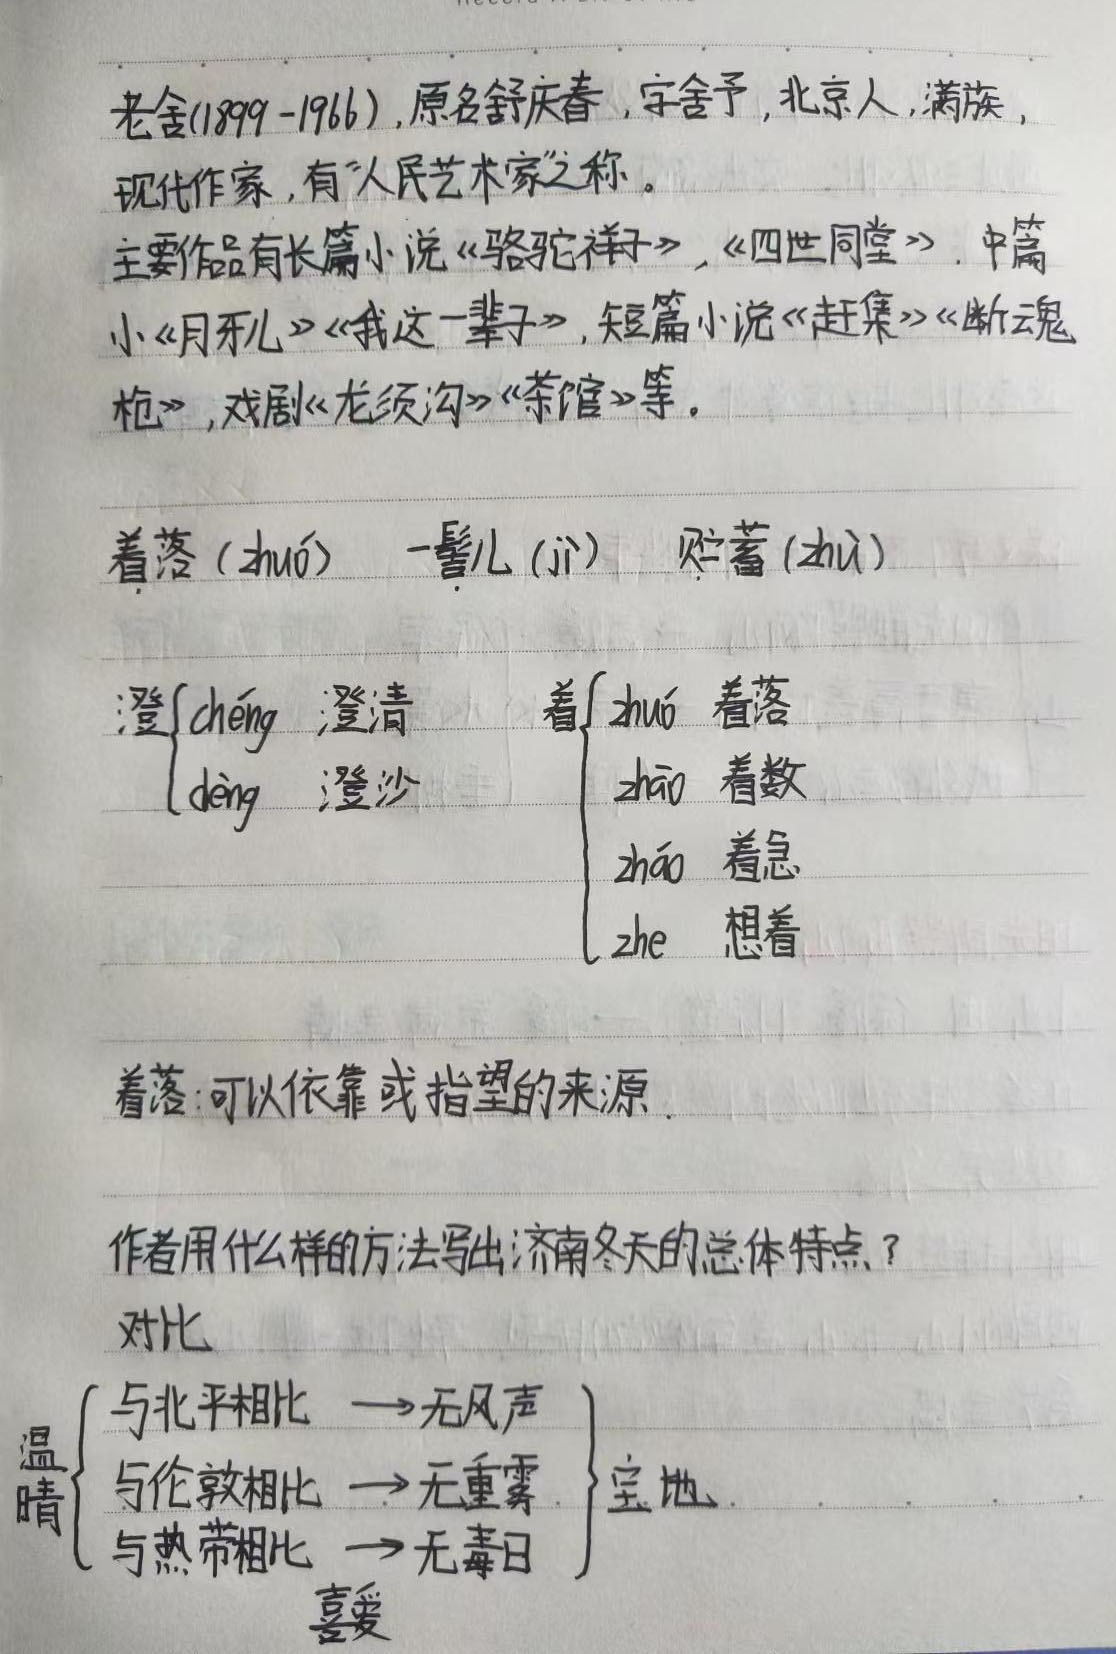 老舍(1899-1966),原名舒庆春,字舍予,北京人,满族,
现代作家,有"人民艺术家"之称。
主要作品有长篇小说《骆驼祥子》,《四世同堂》.中篇
小《月牙儿》《我这一辈子》,短篇小说《赶集》《断魂
枪》,戏剧《龙须沟》《茶馆》等。
着落(zhuó) 一髻儿(jì) 贮蓄(zhù)
澄 chéng 澄清 着 zhuó 着落
dèng 澄沙 zhāo 着数
zháo 着急
zhe 想着
着落:可以依靠或指望的来源.
作者用什么样的方法写出济南冬天的总体特点?
对比
温晴 与北平相比 →无风声
与伦敦相比 →无重雾 宝地.
与热带相比 →无毒日
喜爱